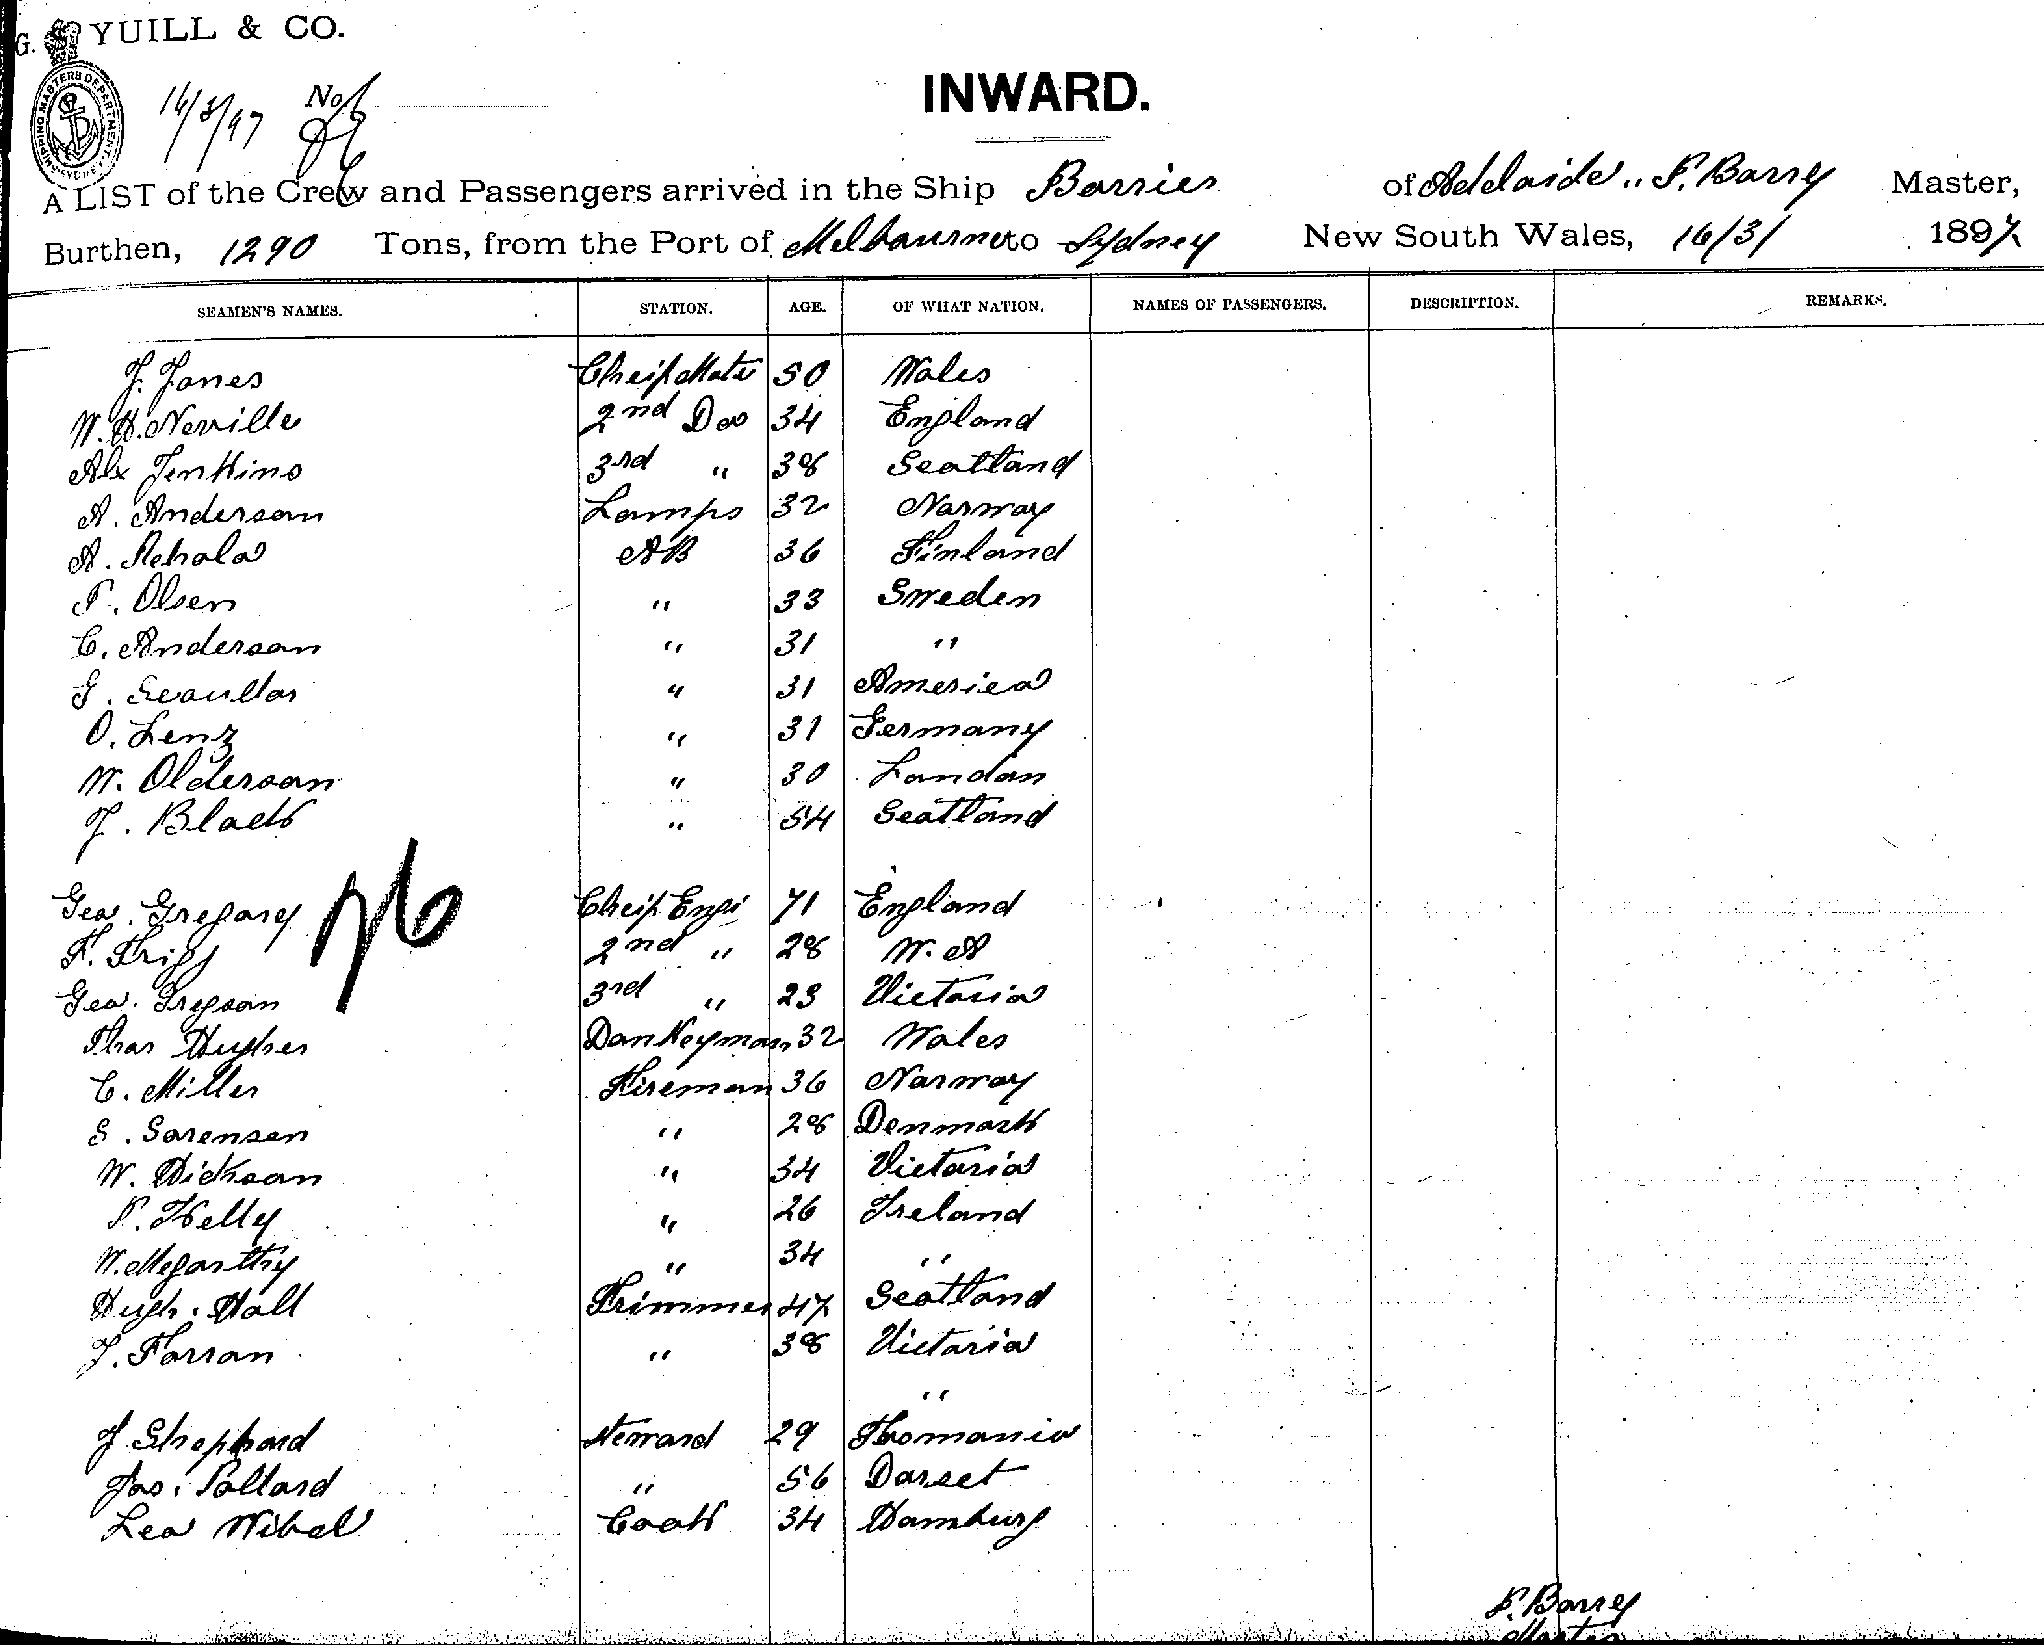 G. S. YUILL & CO.
SHIPPING MASTERS DEPARTMENT SYDNEY
16/3/97 No
INWARD.
A LIST of the Crew and Passengers arrived in the Ship Barrier of Adelaide,, P. Barry Master,
Burthen, 1290 Tons, from the Port of Melbourne to Sydney New South Wales, 16/3/ 1897
SEAMEN'S NAMES. STATION. AGE. OF WHAT NATION. NAMES OF PASSENGERS. DESCRIPTION. REMARKS.
J. Jones Cheif Mate 50 Wales
W. H. Neville 2nd Do 34 England
Alx Jenkins 3rd " 38 Scotland
A. Anderson Lamps 32 Norway
A. AB 36 Finland
P. Olsen " 33 Sweden
C. Anderson " 31 "
G. " 31 America
O. Lenz " 31 Germany
W. Olderson " 30 London
J. Black " 54 Scotland
Geo. Gregory Cheif Engi 71 England
F. Tripp 2nd " 28 W. A
Geo. Gregson 3rd " 23 Victoria
Thos Hughes Donkeyman 32 Wales
C. Miller Fireman 36 Norway
S. Sorensen " 28 Denmark
W. Dickson " 34 Victoria
P. Kelly " 26 Ireland
W. Megarthy " 34 "
Hugh. Hall Trimmer 47 Scotland
J. Farran " 38 Victoria
"
J Shephard steward 29 Thsmania
Jas. Pollard " 56 Dorset
Leo Wibel Cook 34 Hamburg
P. Barry
Master